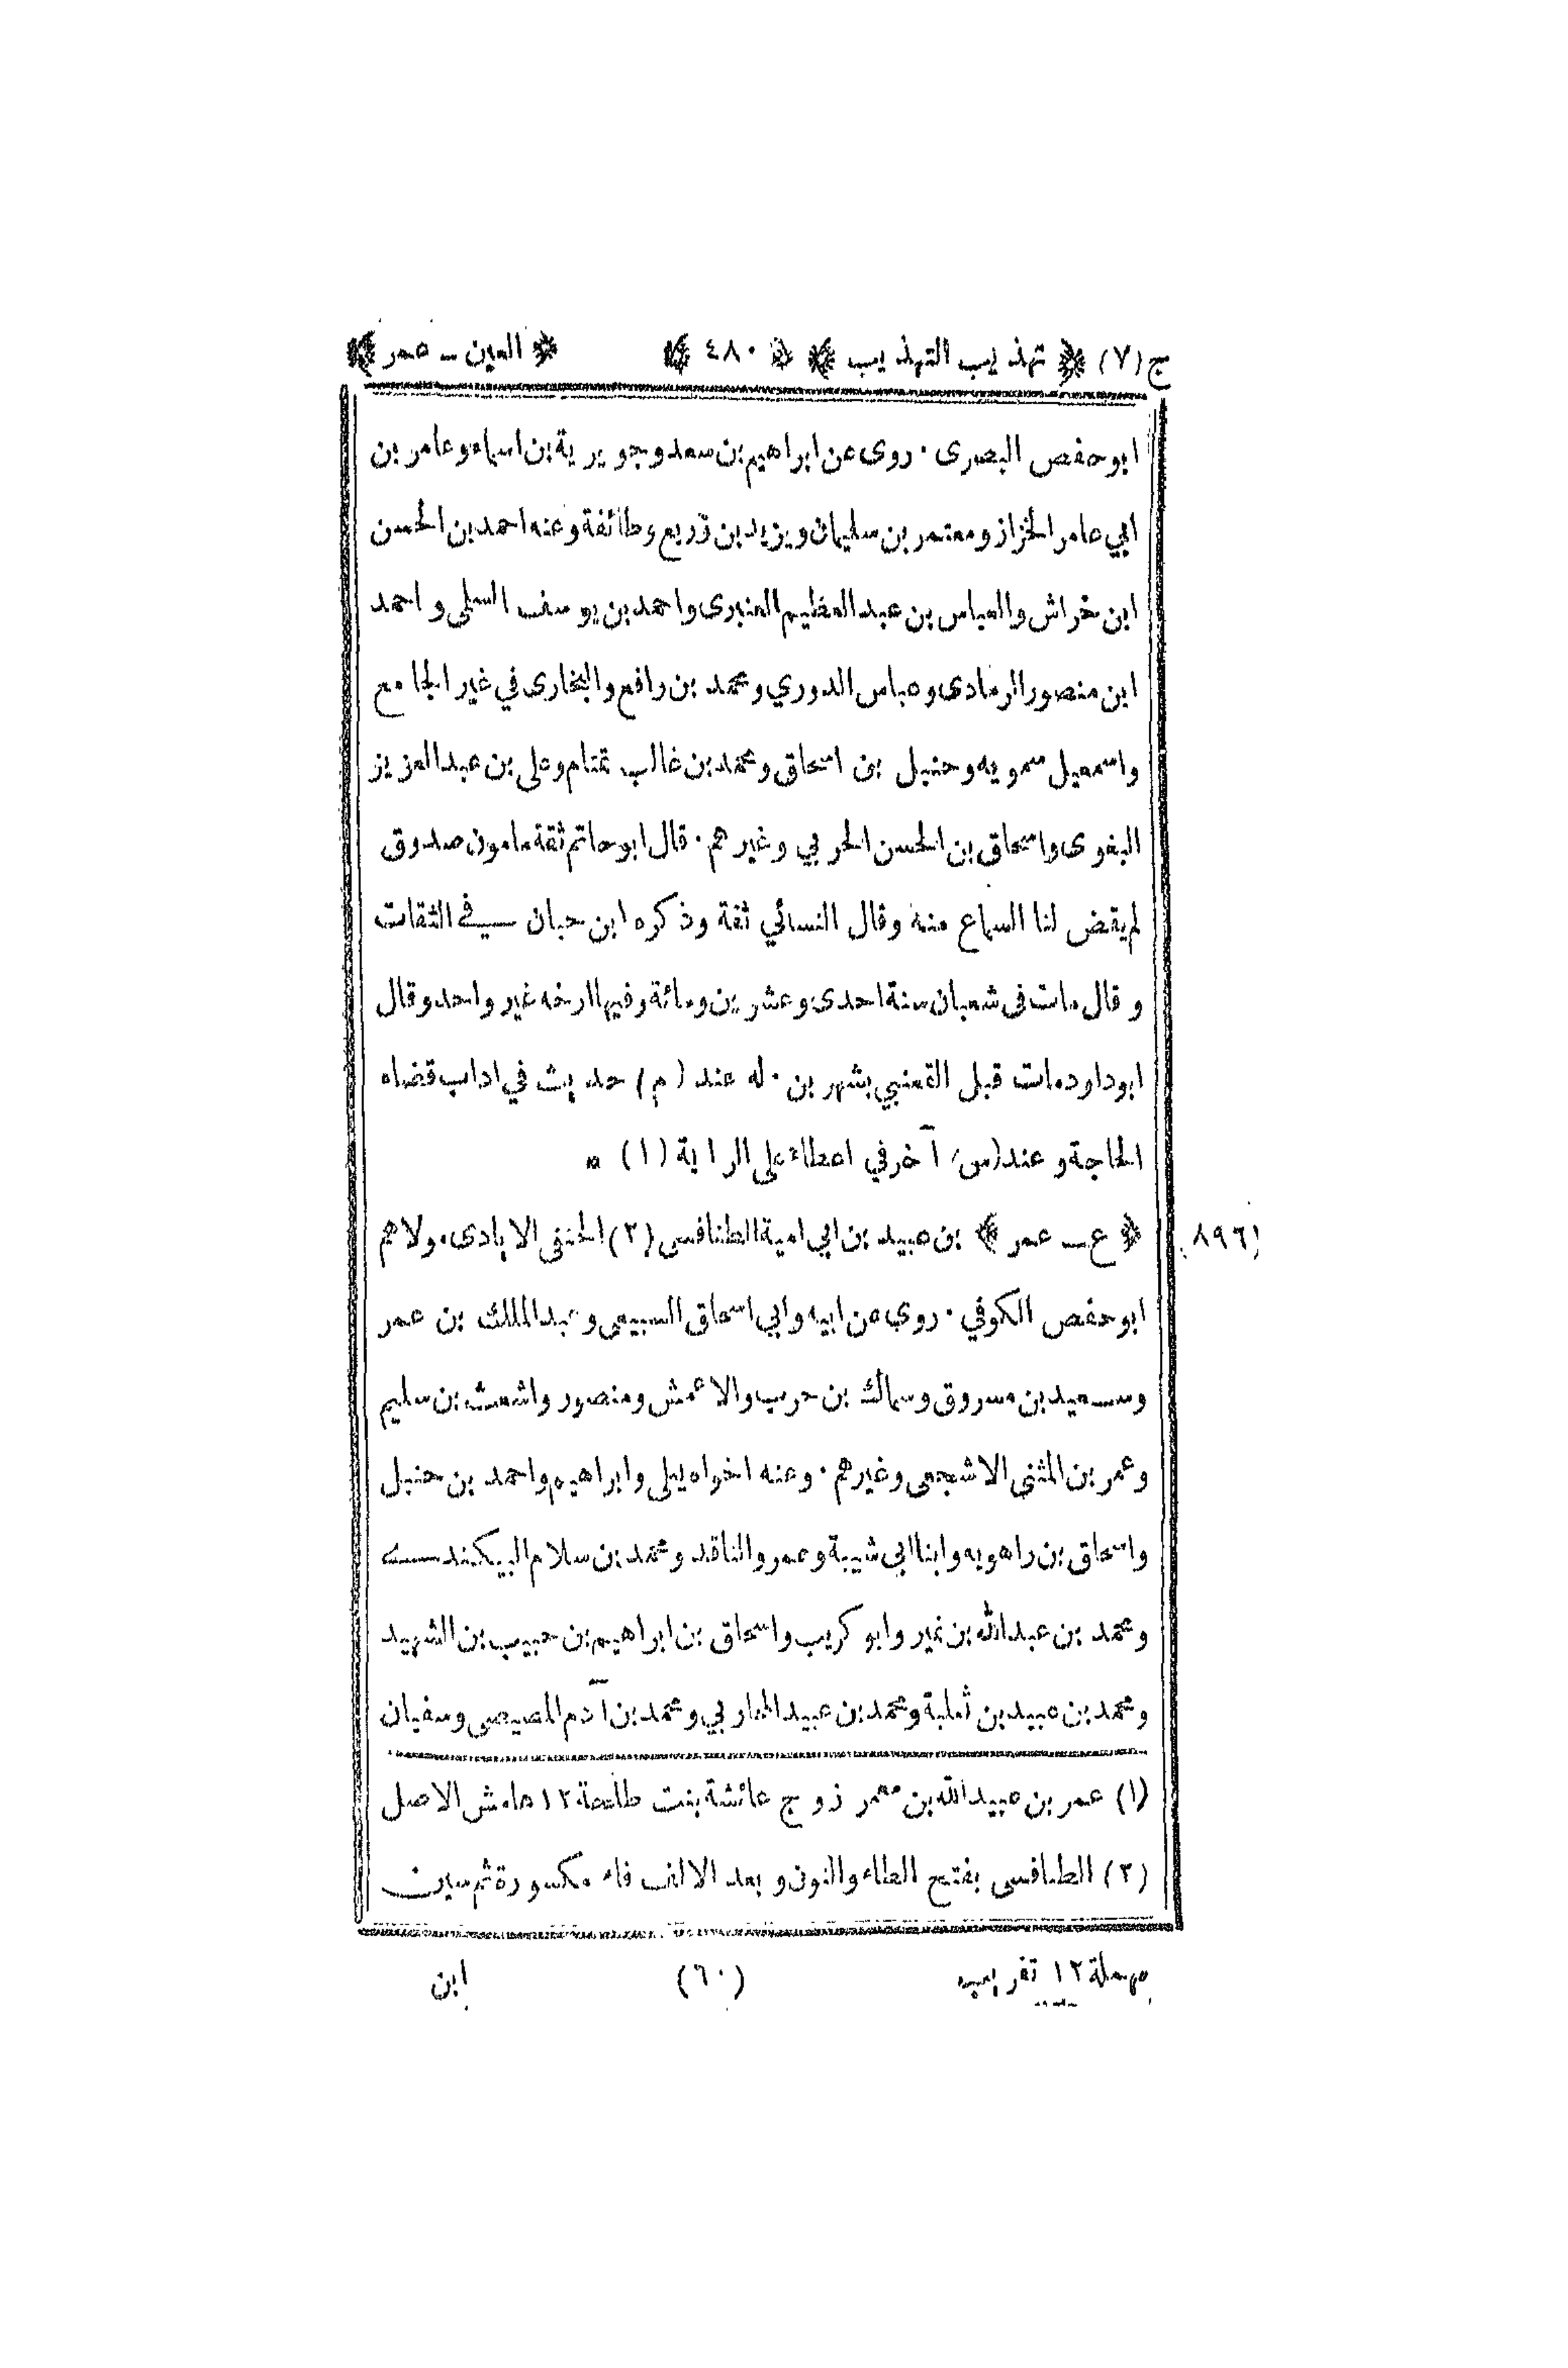 ج(٧) ﴿ تهذيب التهذيب ﴾ ﴿ ٤٨٠ ﴾ ﴿ العين ـ عمر ﴾
ابوحفص البصرى ۰ روى عن ابراهيم بن سعد وجويرية بن اسماء وعامر بن
ابي عامر الخزاز ومعتمر بن سليمان ويزيد بن زريع وطائفة وعنه احمد بن الحسن
ابن خراش والعباس بن عبد العظيم العنبرى واحمد بن يوسف السلمى واحمد
ابن منصور الرمادى وعباس الدوري ومحمد بن رافع والبخارى في غير الجامع
واسمعيل سمويه وحنبل بن اسحاق ومحمد بن غالب تمتام وعلى بن عبد العزيز
البغوى واسحاق بن الحسن الحربي وغيرهم ۰ قال ابوحاتم ثقة مامون صدوق
لم يقض لنا السماع منه وقال النسائي ثقة وذكره ابن حبان في الثقات
وقال مات فى شعبان سنة احدى وعشرين ومائة وفيها ارخه غير واحد وقال
ابوداود مات قبل القعنبي بشهرين ۰ له عند (م) حديث في اداب قضاء
الحاجة وعند (س) آخر في اعطاء على الراية (١) *
٨٩٦ ﴿ ع ـ عمر ﴾ بن عبيد بن ابي امية الطنافسى (٢) الحنفى الايادى ۰ ولاهم
ابوحفص الكوفي ۰ روى عن ابيه وابي اسحاق السبيعى وعبد الملك بن عمر
وسعيد بن مسروق وسماك بن حرب والاعمش ومنصور واشعث بن سليم
وعمر بن المثنى الاشجعى وغيرهم ۰ وعنه اخواه يعلى وابراهيم واحمد بن حنبل
واسحاق بن راهويه وابنا ابي شيبة وعمرو الناقد ومحمد بن سلام البيكندى
ومحمد بن عبدالله بن نمير وابو كريب واسحاق بن ابراهيم بن حبيب بن الشهيد
ومحمد بن عبيد بن ثعلبة ومحمد بن عبيد المحاربي ومحمد بن آدم المصيصى وسفيان
(١) عمر بن عبيدالله بن معمر زوج عائشة بنت طلحة ١٢ هامش الاصل
(٢) الطنافسى بفتح الطاء والنون وبعد الالف فاء مكسورة ثم سين
مهملة ١٢ تقريب (٦٠) ابن